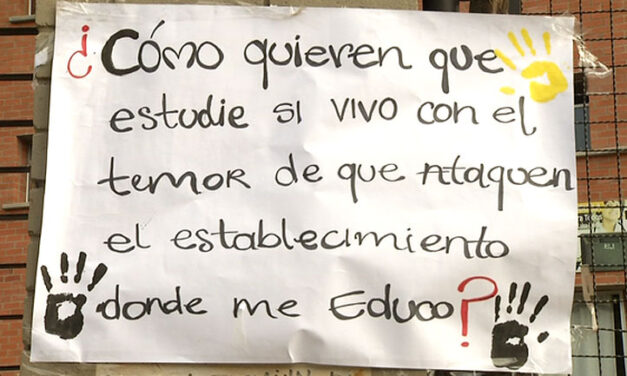 ¿Cómo quieren que
estudie si vivo con el
temor de que ataquen
el establecimiento
donde me Educo?